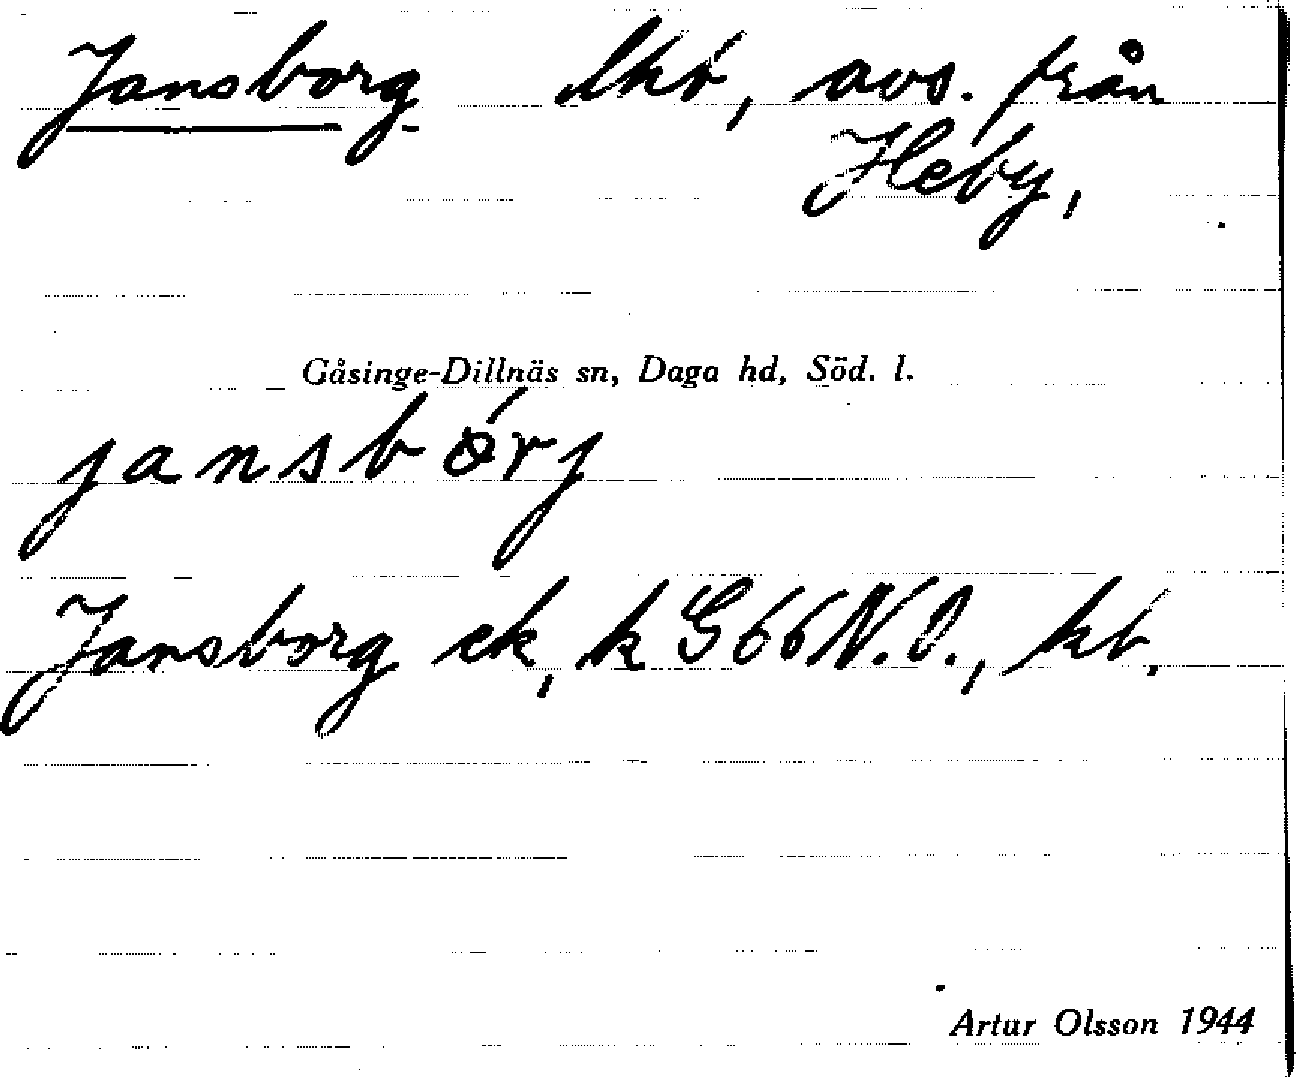 Jansborg lht, avs. från
Heby,
Gåsinge-Dillnäs sn, Daga hd, Söd. l.
jansbórj
Jansborg ek, k G66N.O., kb.
Artur Olsson 1944